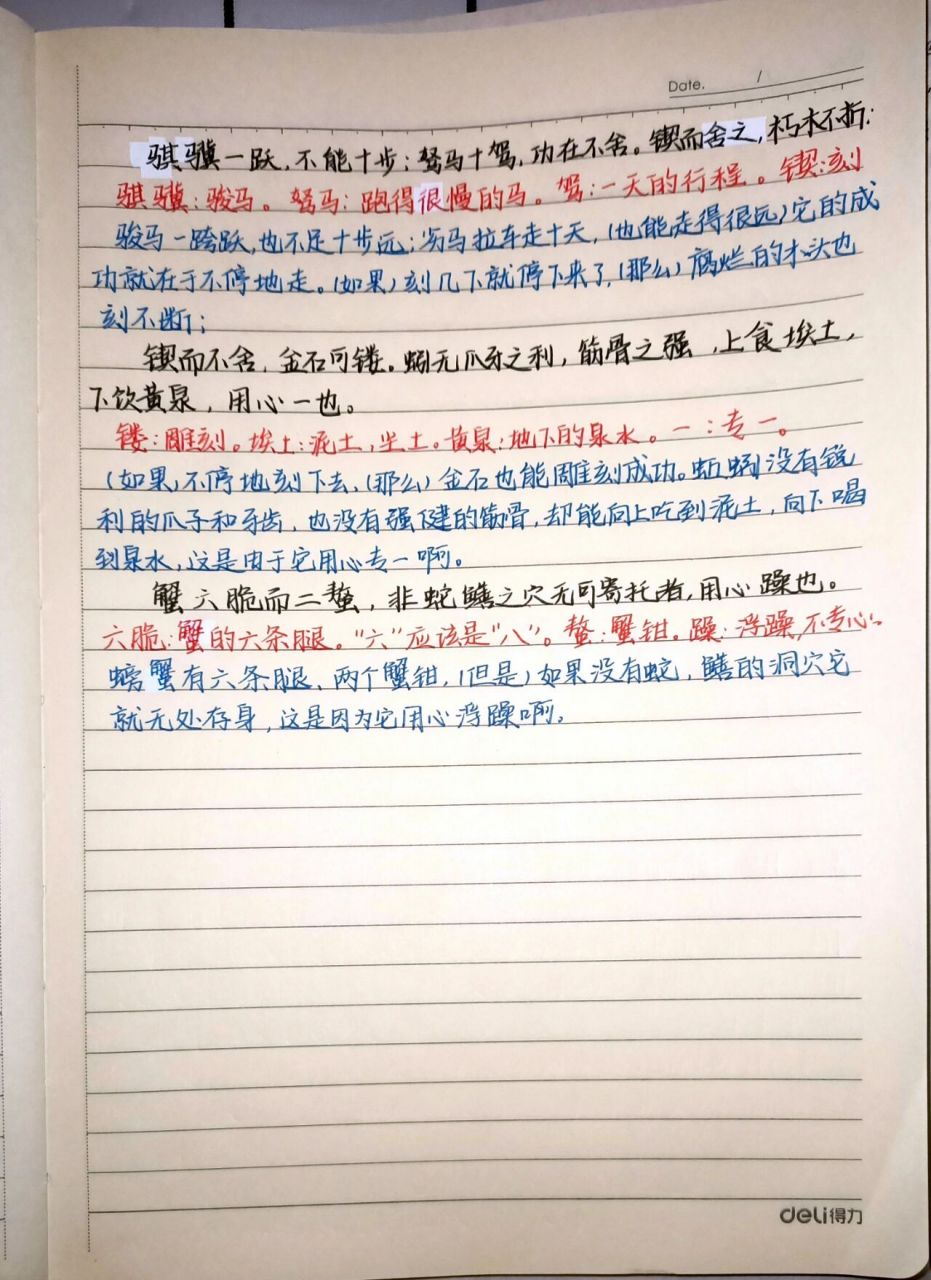 Date. /
骐骥一跃,不能十步;驽马十驾,功在不舍。锲而舍之,朽木不折;
骐骥:骏马。驽马:跑得很慢的马。驾:一天的行程。锲:刻
骏马一跨跃,也不足十步远;劣马拉车走十天,(也能走得很远)它的成
功就在于不停地走。(如果)刻几下就停下来了,(那么)腐烂的木头也
刻不断;
锲而不舍,金石可镂。蚓无爪牙之利,筋骨之强,上食埃土,
下饮黄泉,用心一也。
镂:雕刻。埃土:泥土,尘土。黄泉:地下的泉水。一:专一。
(如果)不停地刻下去,(那么)金石也能雕刻成功。蚯蚓没有锐
利的爪子和牙齿,也没有强健的筋骨,却能向上吃到泥土,向下喝
到泉水,这是由于它用心专一啊。
蟹六脆而二螯,非蛇鳝之穴无可寄托者,用心躁也。
六脆:蟹的六条腿。“六”应该是“八”。螯:蟹钳。躁:浮躁,不专心。
螃蟹有六条腿、两个蟹钳,(但是)如果没有蛇,鳝的洞穴它
就无处存身,这是因为它用心浮躁啊。
deli得力